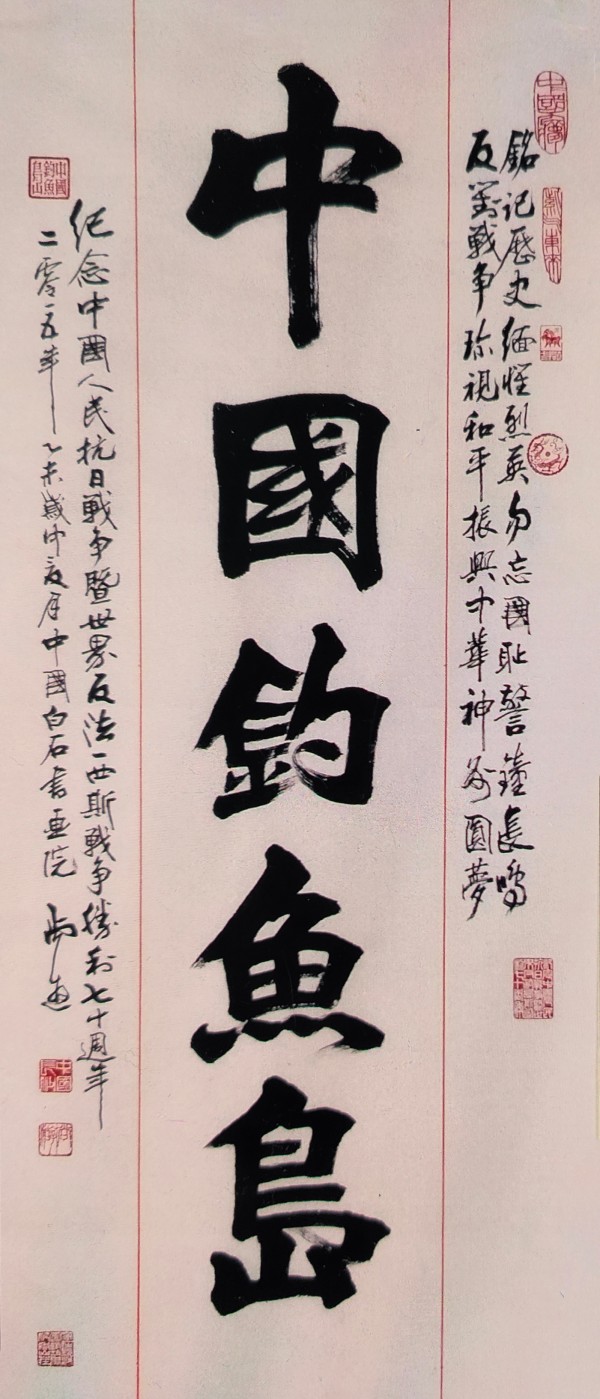 銘记歷史缅怀烈英勿忘國耻警鐘長鳴
反對戰争珍視和平振興中華神州圆夢
中國釣魚島
纪念中國人民抗日戰争暨世界反法西斯戰争勝利七十週年
二零一五年乙未歲仲夏月中國白石書画院
中國釣魚島